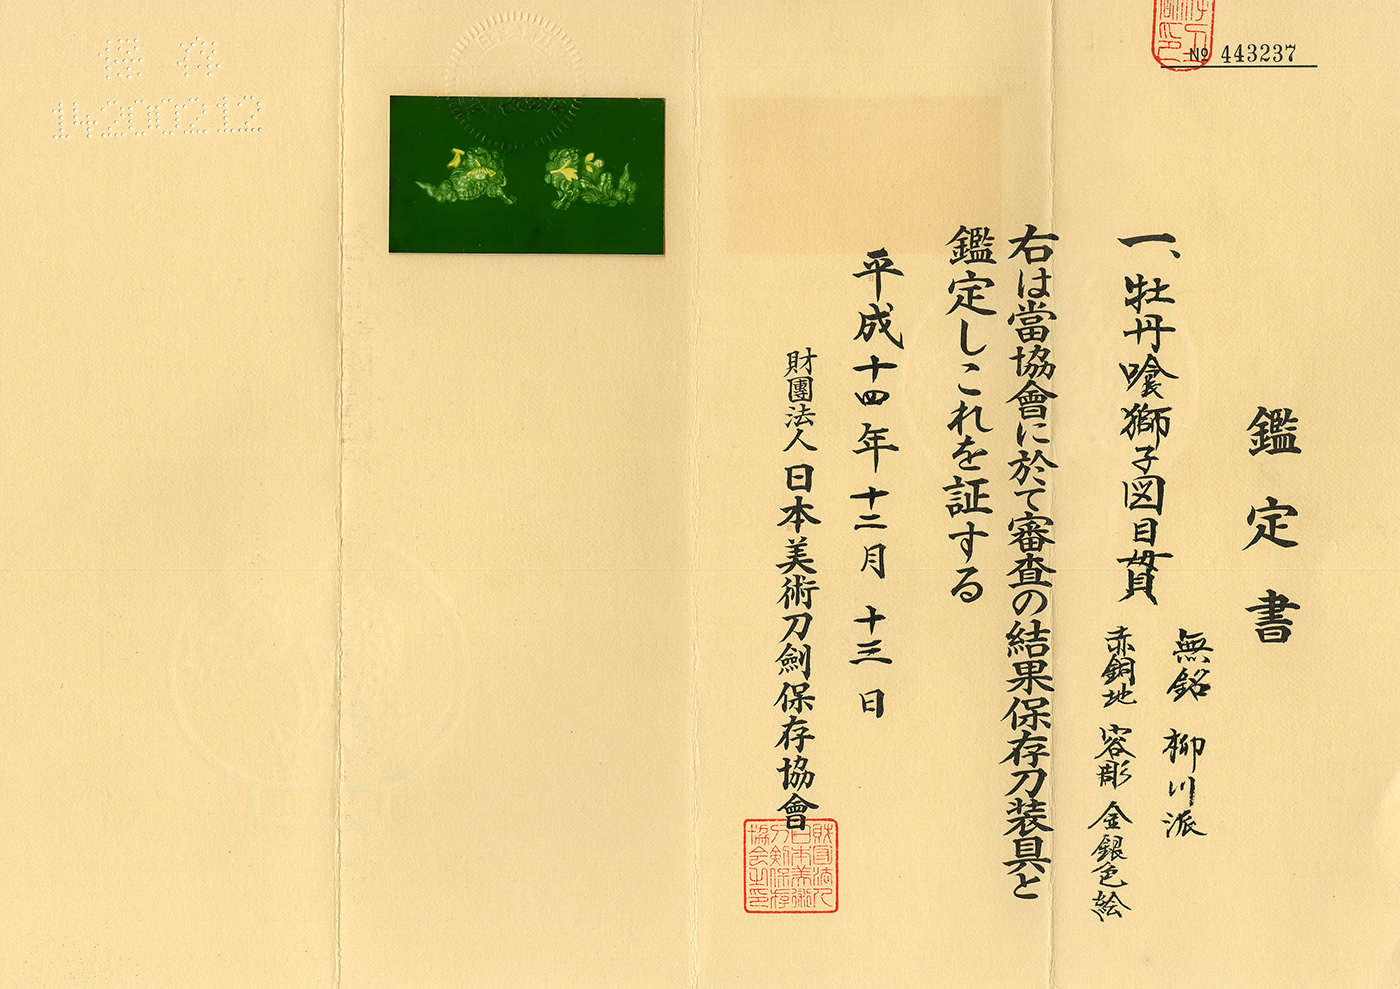 № 443237
鑑定書
一、牡丹喰獅子図目貫
無銘 柳川派
赤銅地 容彫 金銀色絵
右は當協會に於て審査の結果保存刀装具と
鑑定しこれを証する
平成十四年十二月十三日
財團法人日本美術刀劍保存協會
財団法人
日本美術
刀剣保存
協会之印
保存
14200212